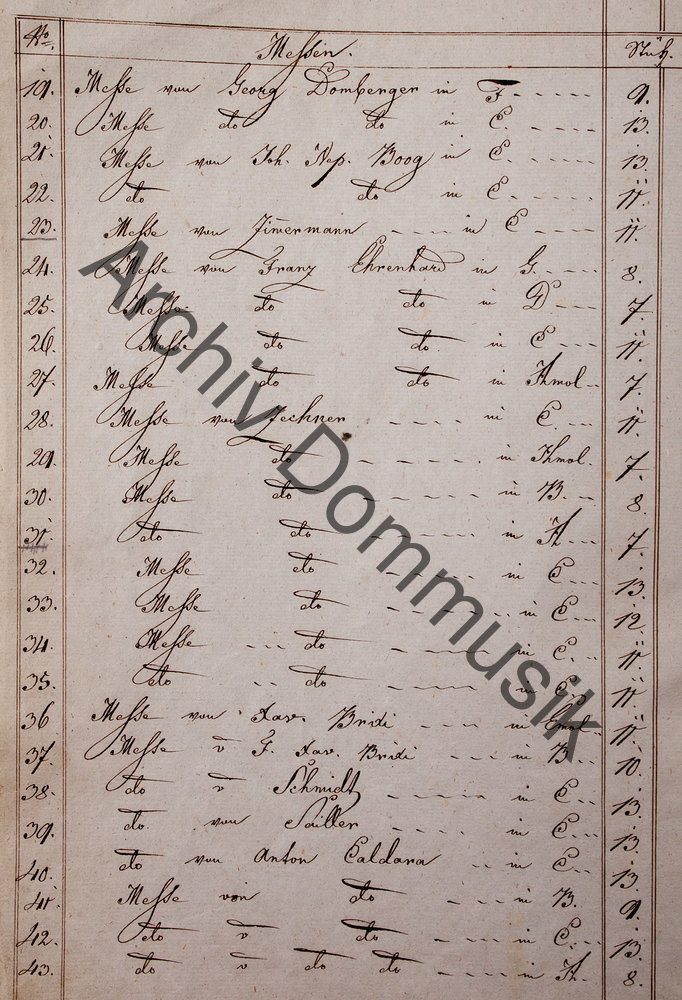 No. Messen. Stück.
19. Messe von Georg Domberger in F - - - - - 9.
20. Messe do do in C. - - - - 13.
21. Messe von Joh. Nep. Boog in C. - - - - - 13.
22. do do in C - - - - 11.
23. Messe von Zimermann - - - - in C - - - - 11.
24. Messe von Franz Ehrenhard in G. - - - - 8.
25. Messe do do in D - - - - 7.
26. Messe do do. in C - - - - 11.
27. Messe do do in Amol - - 7.
28. Messe von Zechner - - - - - in C. - - - 11.
29. Messe do - - - - - - in Amol. 7.
30. Messe do - - - - - - - in B. - - 8.
31. do do - - - - - - in A - - - 7.
32. Messe do - - - - - - in C - - - 13.
33. Messe do - - - - - - - in C - - - 12.
34. Messe - - - do - - - - - in C. - - 11.
35. do - - do - - - - - in 11.
36 Messe von Xav. Brixi - - - - in 11.
37. Messe v F. Xav. Brixi - - - in B - - - 10.
38. do v Schmidt - - - - - - in C - - - 13.
39. do. von Sailler - - - - in C - - - 13.
40. do von Anton Caldara - - - in C - - 13.
41. Messe von do - - - - in B. 9.
42. do v do - - - - in C. - - - 13.
43. do v do do - - - - in A. - - 8.
Archiv Dommusik